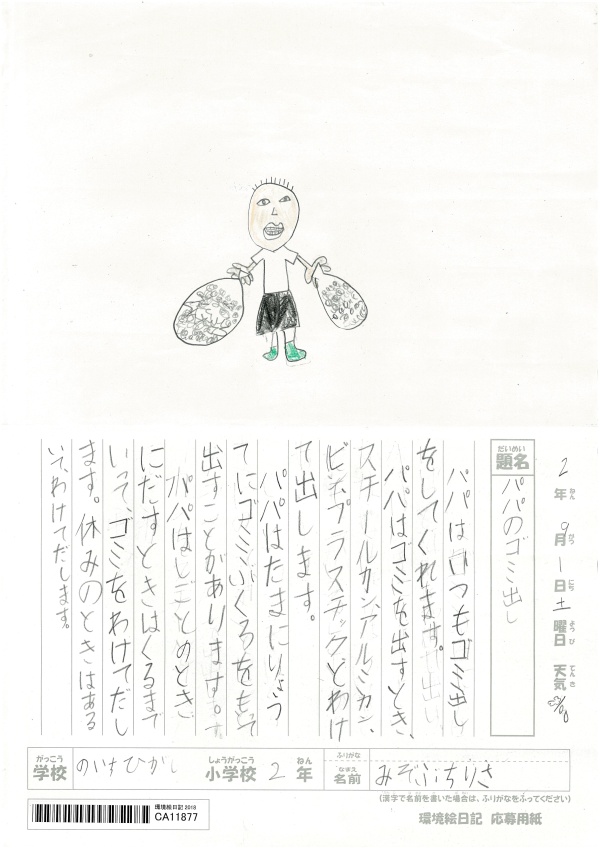 2年ねん 9月がつ 1日にち 土曜日ようび 天気てんき
題名だいめい パパのゴミ出し
パパはいつもゴミ出し
をしてくれます。
パパはゴミを出すとき、
スチールカン、アルミカン、
ビン、プラスチックとわけ
て出します。
パパはたまにりょう
てにゴミぶくろをもって
出すことがあります。
パパはしごとのとき
にだすときはくるまで
いって、ゴミをわけてだし
ます。休みのときはある
いて、わけてだします。
がっこう 学校 のいちひがし 小学校しょうがっこう 2年ねん
ふりがな
なまえ 名前 みぞぶちりさ
(漢字で名前を書いた場合は、ふりがなをふってください)
環境絵日記 2018
CA11877
環境絵日記 応募用紙